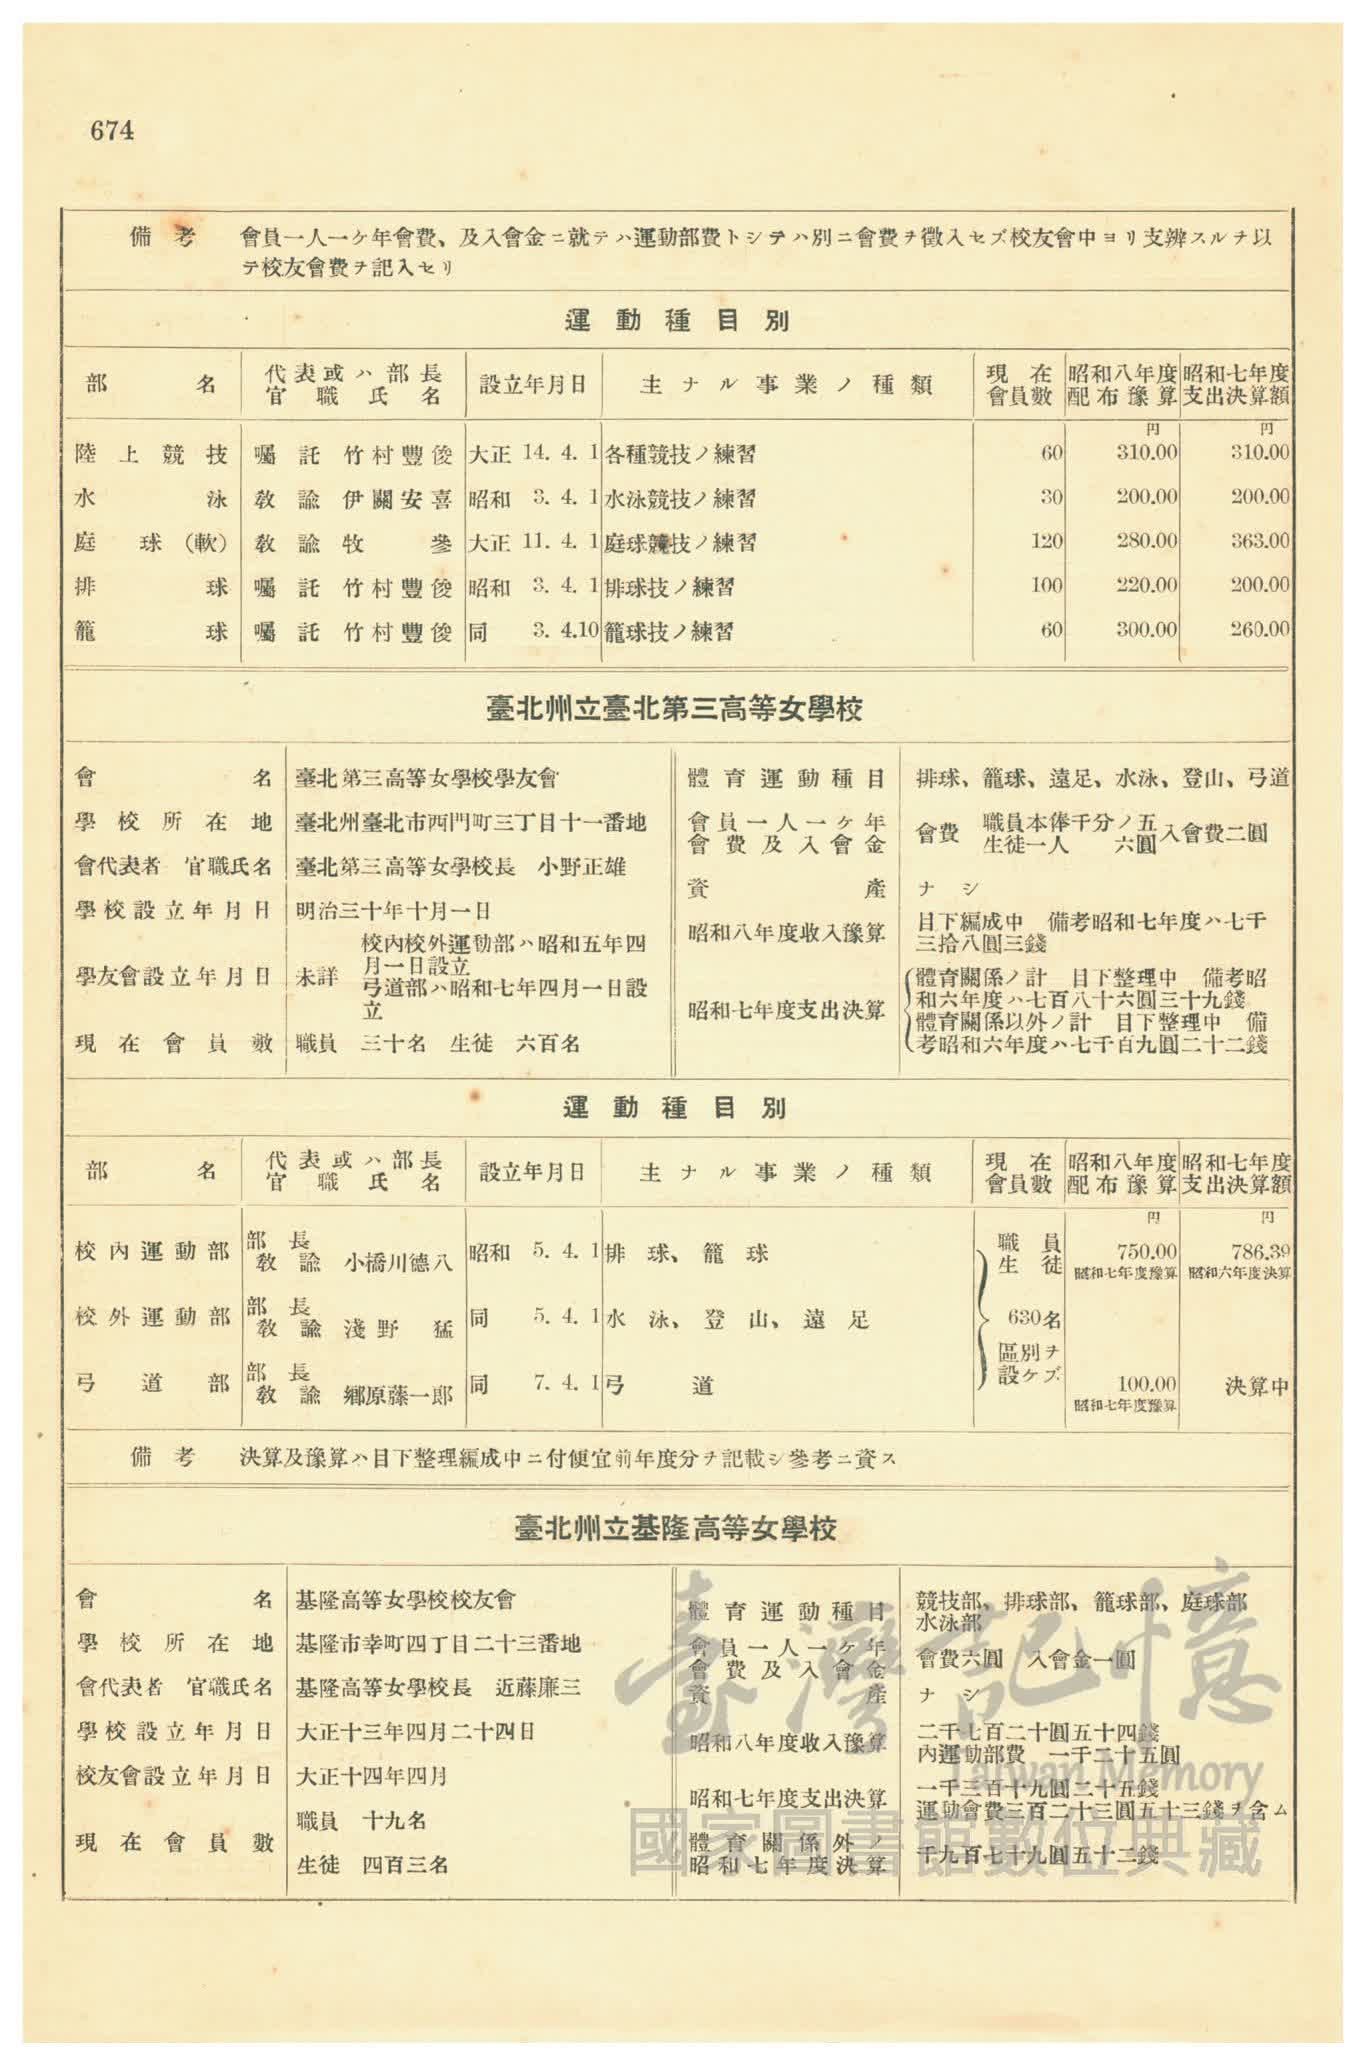 674
備考 會員一人一ケ年會費、及入會金ニ就テハ運動部費トシテハ別ニ會費ヲ徵入セズ校友會中ヨリ支辨スルヲ以
テ校友會費ヲ記入セリ
運動種目別
部名 代表或ハ部長官職氏名 設立年月日 主ナル事業ノ種類 現在會員數 昭和八年度配布豫算 昭和七年度支出決算額
円 円
陸上競技 囑託 竹村豐俊 大正 14. 4. 1 各種競技ノ練習 60 310.00 310.00
水泳 敎諭 伊關安喜 昭和 3. 4. 1 水泳競技ノ練習 30 200.00 200.00
庭球(軟) 敎諭 牧參 大正 11. 4. 1 庭球競技ノ練習 120 280.00 363.00
排球 囑託 竹村豐俊 昭和 3. 4. 1 排球技ノ練習 100 220.00 200.00
籠球 囑託 竹村豐俊 同 3. 4.10 籠球技ノ練習 60 300.00 260.00
臺北州立臺北第三高等女學校
會名 臺北第三高等女學校學友會
學校所在地 臺北州臺北市西門町三丁目十一番地
會代表者 官職氏名 臺北第三高等女學校長 小野正雄
學校設立年月日 明治三十年十月一日
學友會設立年月日 未詳 校內校外運動部ハ昭和五年四
月一日設立
弓道部ハ昭和七年四月一日設
立
現在會員數 職員 三十名 生徒 六百名
體育運動種目 排球、籠球、遠足、水泳、登山、弓道
會員一人一ケ年會費及入會金 會費 職員本俸千分ノ五 生徒一人 六圓 入會費二圓
資產 ナシ
昭和八年度收入豫算 目下編成中 備考昭和七年度ハ七千
三拾八圓三錢
昭和七年度支出決算 體育關係ノ計 目下整理中 備考昭
和六年度ハ七百八十六圓三十九錢
體育關係以外ノ計 目下整理中 備
考昭和六年度ハ七千百九圓二十二錢
運動種目別
部名 代表或ハ部長官職氏名 設立年月日 主ナル事業ノ種類 現在會員數 昭和八年度配布豫算 昭和七年度支出決算額
円 円
校內運動部 部長敎諭 小橋川德八 昭和 5. 4. 1 排球、籠球 職員生徒 750.00 昭和七年度豫算 786.39 昭和六年度決算
校外運動部 部長敎諭 淺野猛 同 5. 4. 1 水泳、登山、遠足 630名
弓道部 部長敎諭 鄕原藤一郎 同 7. 4. 1 弓道 區別ヲ設ケズ 100.00 昭和七年度豫算 決算中
備考 決算及豫算ハ目下整理編成中ニ付便宜前年度分ヲ記載シ參考ニ資ス
臺北州立基隆高等女學校
會名 基隆高等女學校校友會
學校所在地 基隆市幸町四丁目二十三番地
會代表者 官職氏名 基隆高等女學校長 近藤廉三
學校設立年月日 大正十三年四月二十四日
校友會設立年月日 大正十四年四月
現在會員數 職員 十九名
生徒 四百三名
體育運動種目 競技部、排球部、籠球部、庭球部
水泳部
會員一人一ケ年會費及入會金 會費六圓 入會金一圓
資產 ナシ
昭和八年度收入豫算 二千七百二十圓五十四錢
內運動部費 一千二十五圓
昭和七年度支出決算 一千三百十九圓二十五錢
運動會費三百二十三圓五十三錢ヲ含ム
體育關係外ノ昭和七年度決算 千九百七十九圓五十二錢
臺灣記憶
Taiwan Memory
國家圖書館數位典藏